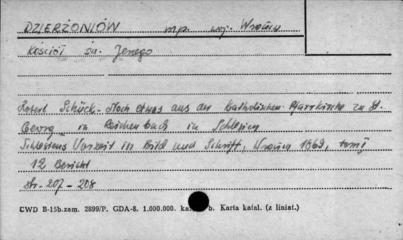 DZIERŻONIÓW mp. woj. Wrocław
Kościół św. Jerzego
Robert Schück - Noch etwas aus der katholischen Pfarrkirche zu St.
Georg in Reichenbach in Schlesien
Schlesiens Vorzeit in Bild und Schrift, Wrocław 1869, tom I
12 Bericht
str. 207 - 208
CWD B-15b.zam. 2899/P. GDA-8. 1.000.000. b. Karta katal. (z liniat.)